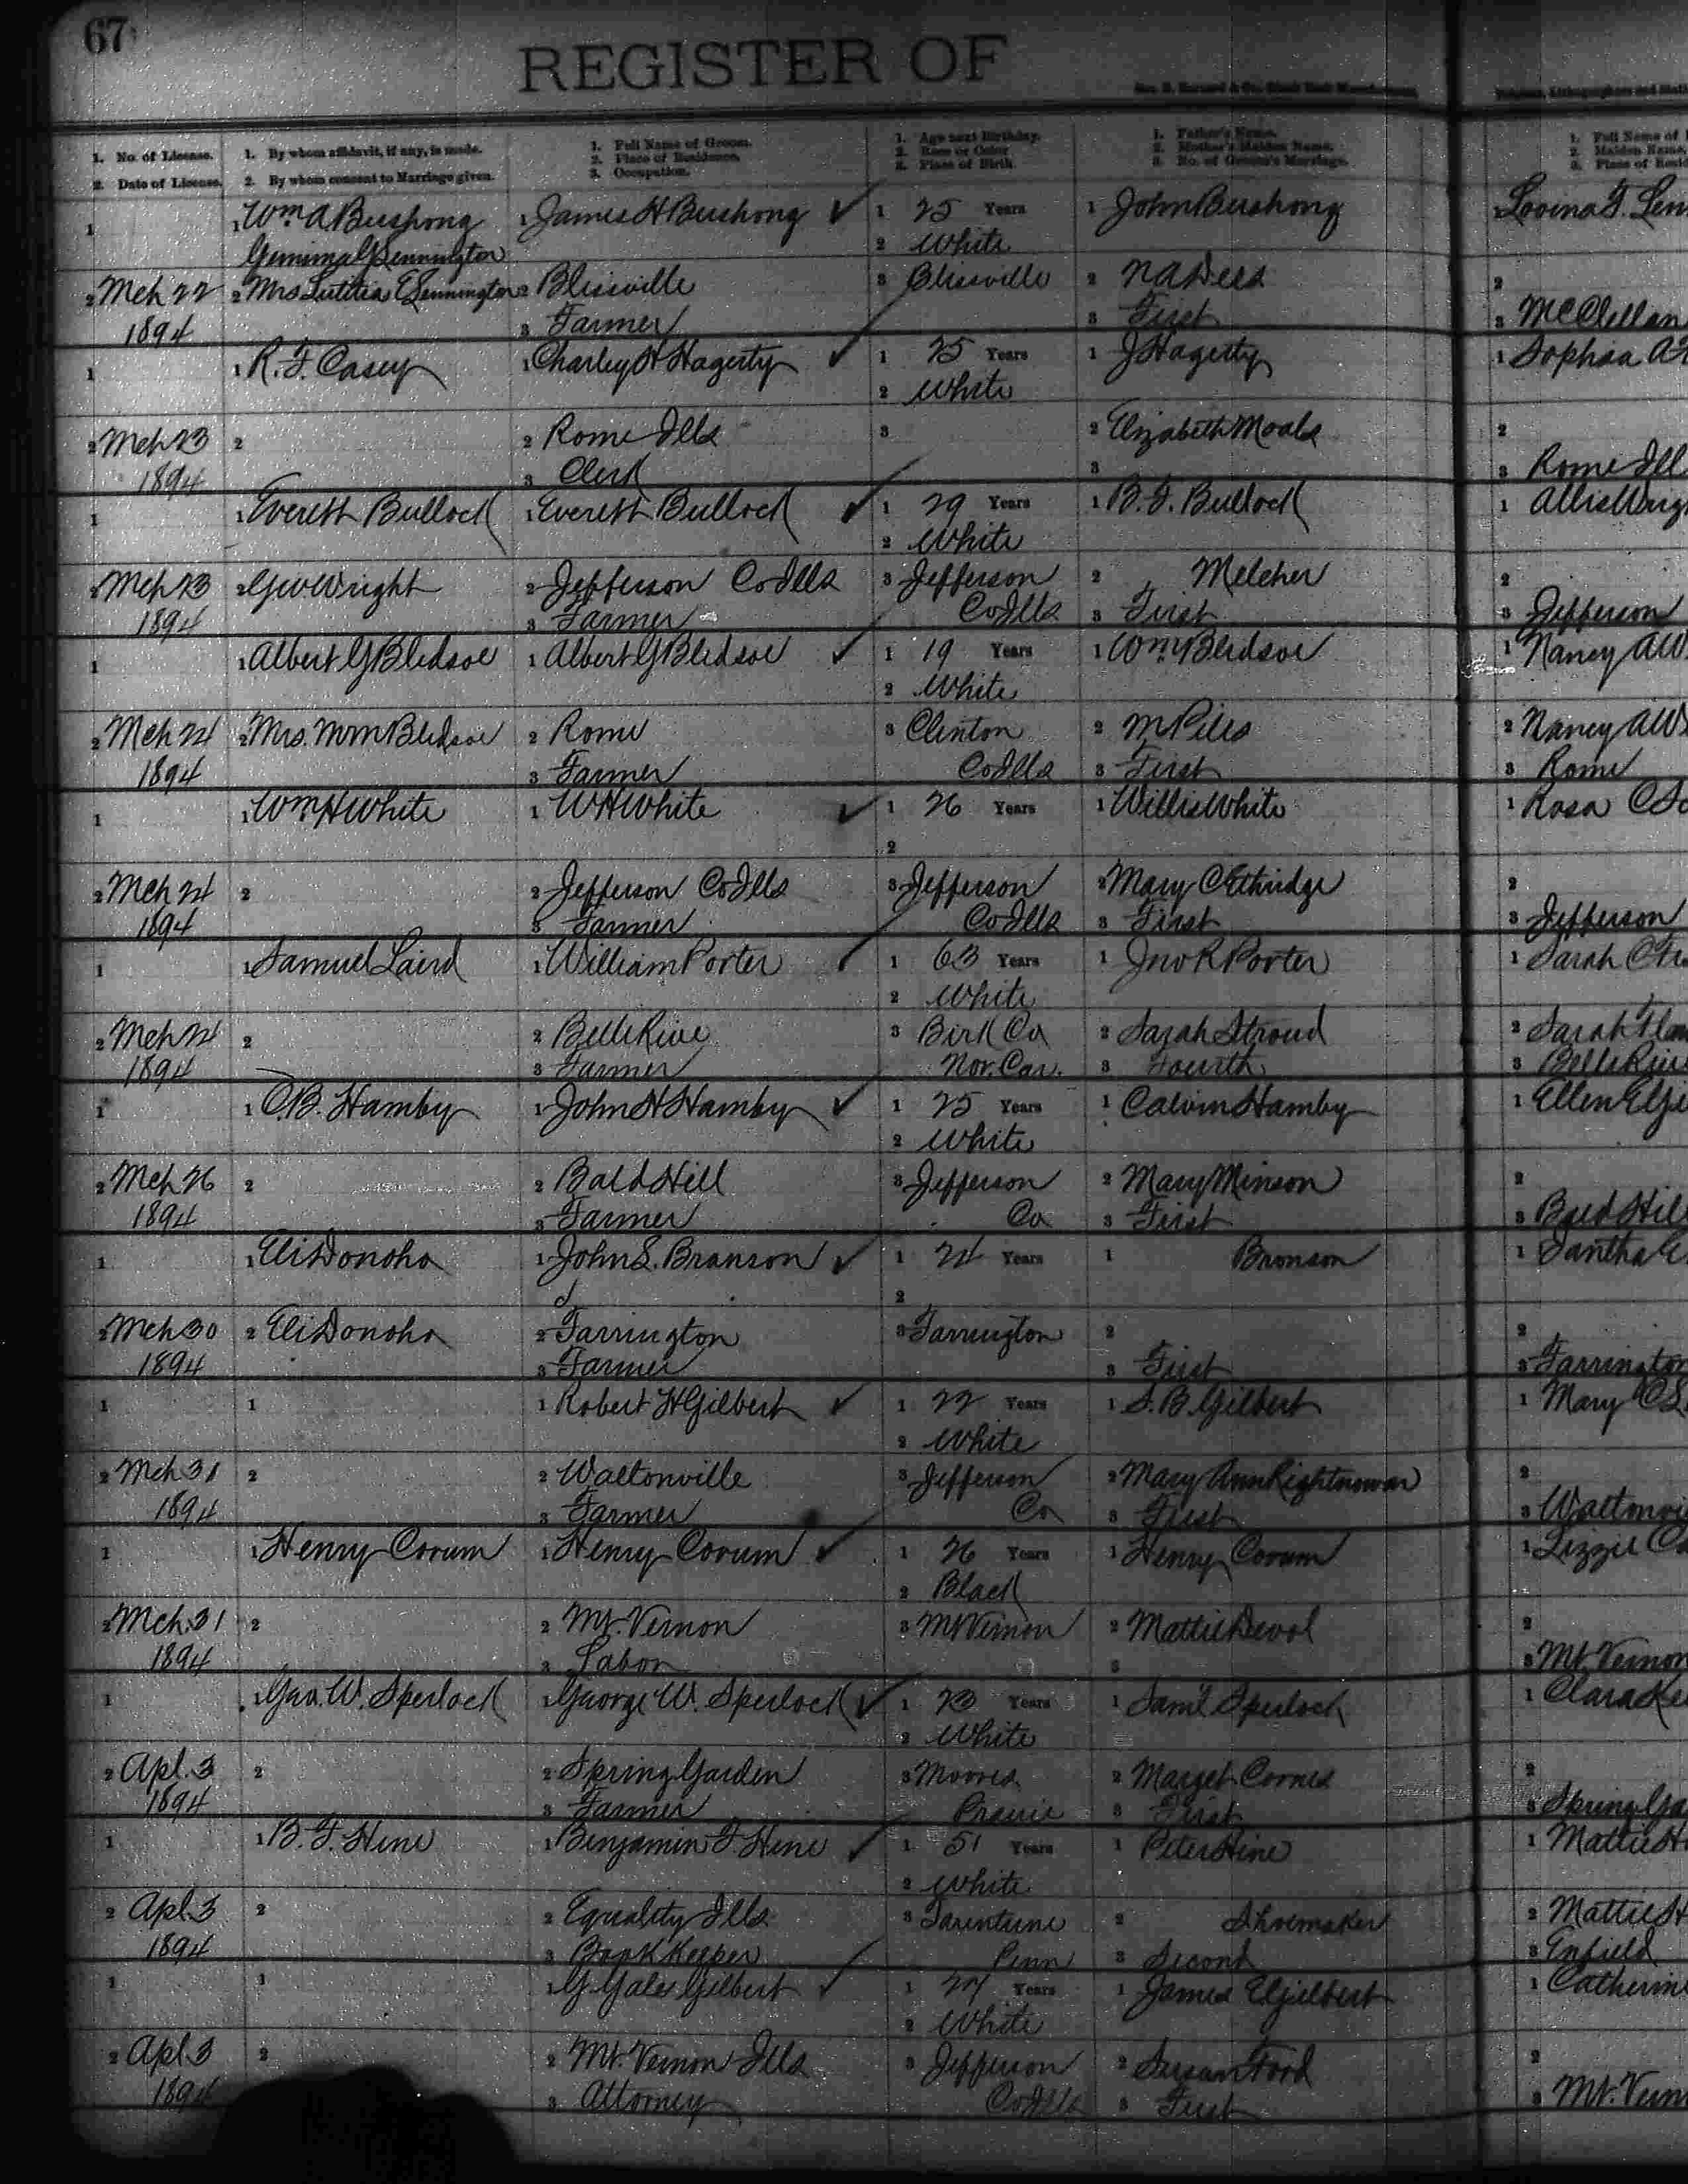 67
REGISTER OF
1. No. of License.
2. Date of License.
1. By whom affidavit, if any, is made.
2. By whom consent to Marriage given.
1. Full Name of Groom.
2. Place of Residence.
3. Occupation.
1. Age next Birthday.
2. Race or Color
3. Place of Birth.
1. Father's Name.
2. Mother's Maiden Name.
3. No. of Groom's Marriage.
1. Full Name of
2. Maiden Name,
3. Place of Resid
1 1 Wm A Bushong 1 James H Bushong ✓ 1 25 Years 1 John Bushong
2 White
2 Mch 22 2 Mrs 2 Blissville 3 Blissville 2 2
1894 3 Farmer 3 First 3 McClellan
1 1 R. F. Casey 1 Charley H Hagerty ✓ 1 25 Years 1 J Hagerty 1 Sophia
2 White
2 Mch 23 2 2 Rome Ills 3 2 Elizabeth Moals 2
1894 3 Clerk 3 3 Rome Ill
1 1 Everett Bullock 1 Everett Bullock ✓ 1 29 Years 1 B. F. Bullock 1
2 White
2 Mch 23 2 G W Wright 2 Jefferson Co Ills 3 Jefferson 2 Melcher 2
1894 3 Farmer Co Ills 3 First 3 Jefferson
1 1 Albert G Bledsoe 1 Albert G Bledsoe ✓ 1 19 Years 1 Wm Bledsoe 1 Nancy A W
2 White
2 Mch 24 2 Mrs. Bledsoe 2 Rome 3 Clinton 2 M Piles 2 Nancy A W
1894 3 Farmer Co Ills 3 First 3 Rome
1 1 Wm H White 1 W H White ✓ 1 26 Years 1 Willis White 1 Rosa
2
2 Mch 24 2 2 Jefferson Co Ills 3 Jefferson 2 Mary C Ethridge 2
1894 3 Farmer Co Ills 3 First 3 Jefferson
1 1 Samuel Laird 1 William Porter ✓ 1 63 Years 1 Jno R Porter 1 Sarah
2 White
2 Mch 24 2 2 Belle Rive 3 Birk Co 2 Sarah Stroud 2 Sarah
1894 3 Farmer Nor. Car. 3 Fourth 3 Belle Rive
1 1 C B. Hamby 1 John H Hamby ✓ 1 25 Years 1 Calvin Hamby 1 Ellen
2 White
2 Mch 26 2 2 Bald Hill 3 Jefferson 2 Mary Minson 2
1894 3 Farmer Co 3 First 3 Bald Hill
1 1 Eli Donoho 1 John S. Branson ✓ 1 24 Years 1 Bronson 1
2
2 Mch 30 2 Eli Donoho 2 Farrington 3 Farrington 2 2
1894 3 Farmer 3 First 3 Farrington
1 1 1 Robert H Gilbert ✓ 1 22 Years 1 S. B. Gilbert 1 Mary
2 White
2 Mch 31 2 2 Waltonville 3 Jefferson 2 Mary Ann Rightnowar 2
1894 3 Farmer Co 3 First 3 Waltonvi
1 1 Henry Corum 1 Henry Corum ✓ 1 26 Years 1 Henry Corum 1 Lizzie
2 Black
2 Mch. 31 2 2 Mt. Vernon 3 Mt Vernon 2 Mattie 2
1894 3 Labor 3 3 Mt. Vernon
1 1 Geo. W. Sperlock 1 George W. Sperlock ✓ 1 23 Years 1 Saml. Sperlock 1 Clara
2 White
2 Apl. 3 2 2 Spring Garden 3 Moores 2 Marget Cornes 2
1894 3 Farmer Prairie 3 First 3 Spring Ga
1 1 B. F. Hine 1 Benjamin F. Hine ✓ 1 51 Years 1 Peter Hine 1 Mattie
2 White
2 Apl. 3 2 2 Equality Ills 3 2 Shoemaker 2 Mattie
1894 3 Book Keeper Penn 3 Second 3 Enfield
1 1 1 G. Gale Gilbert ✓ 1 Years 1 James E Gilbert 1 Catherine
2 White
2 Apl 3 2 2 Mt. Vernon Ills 3 Jefferson 2 Susan Ford 2
1894 3 Attorney Co Ills 3 First 3 Mt. Vern